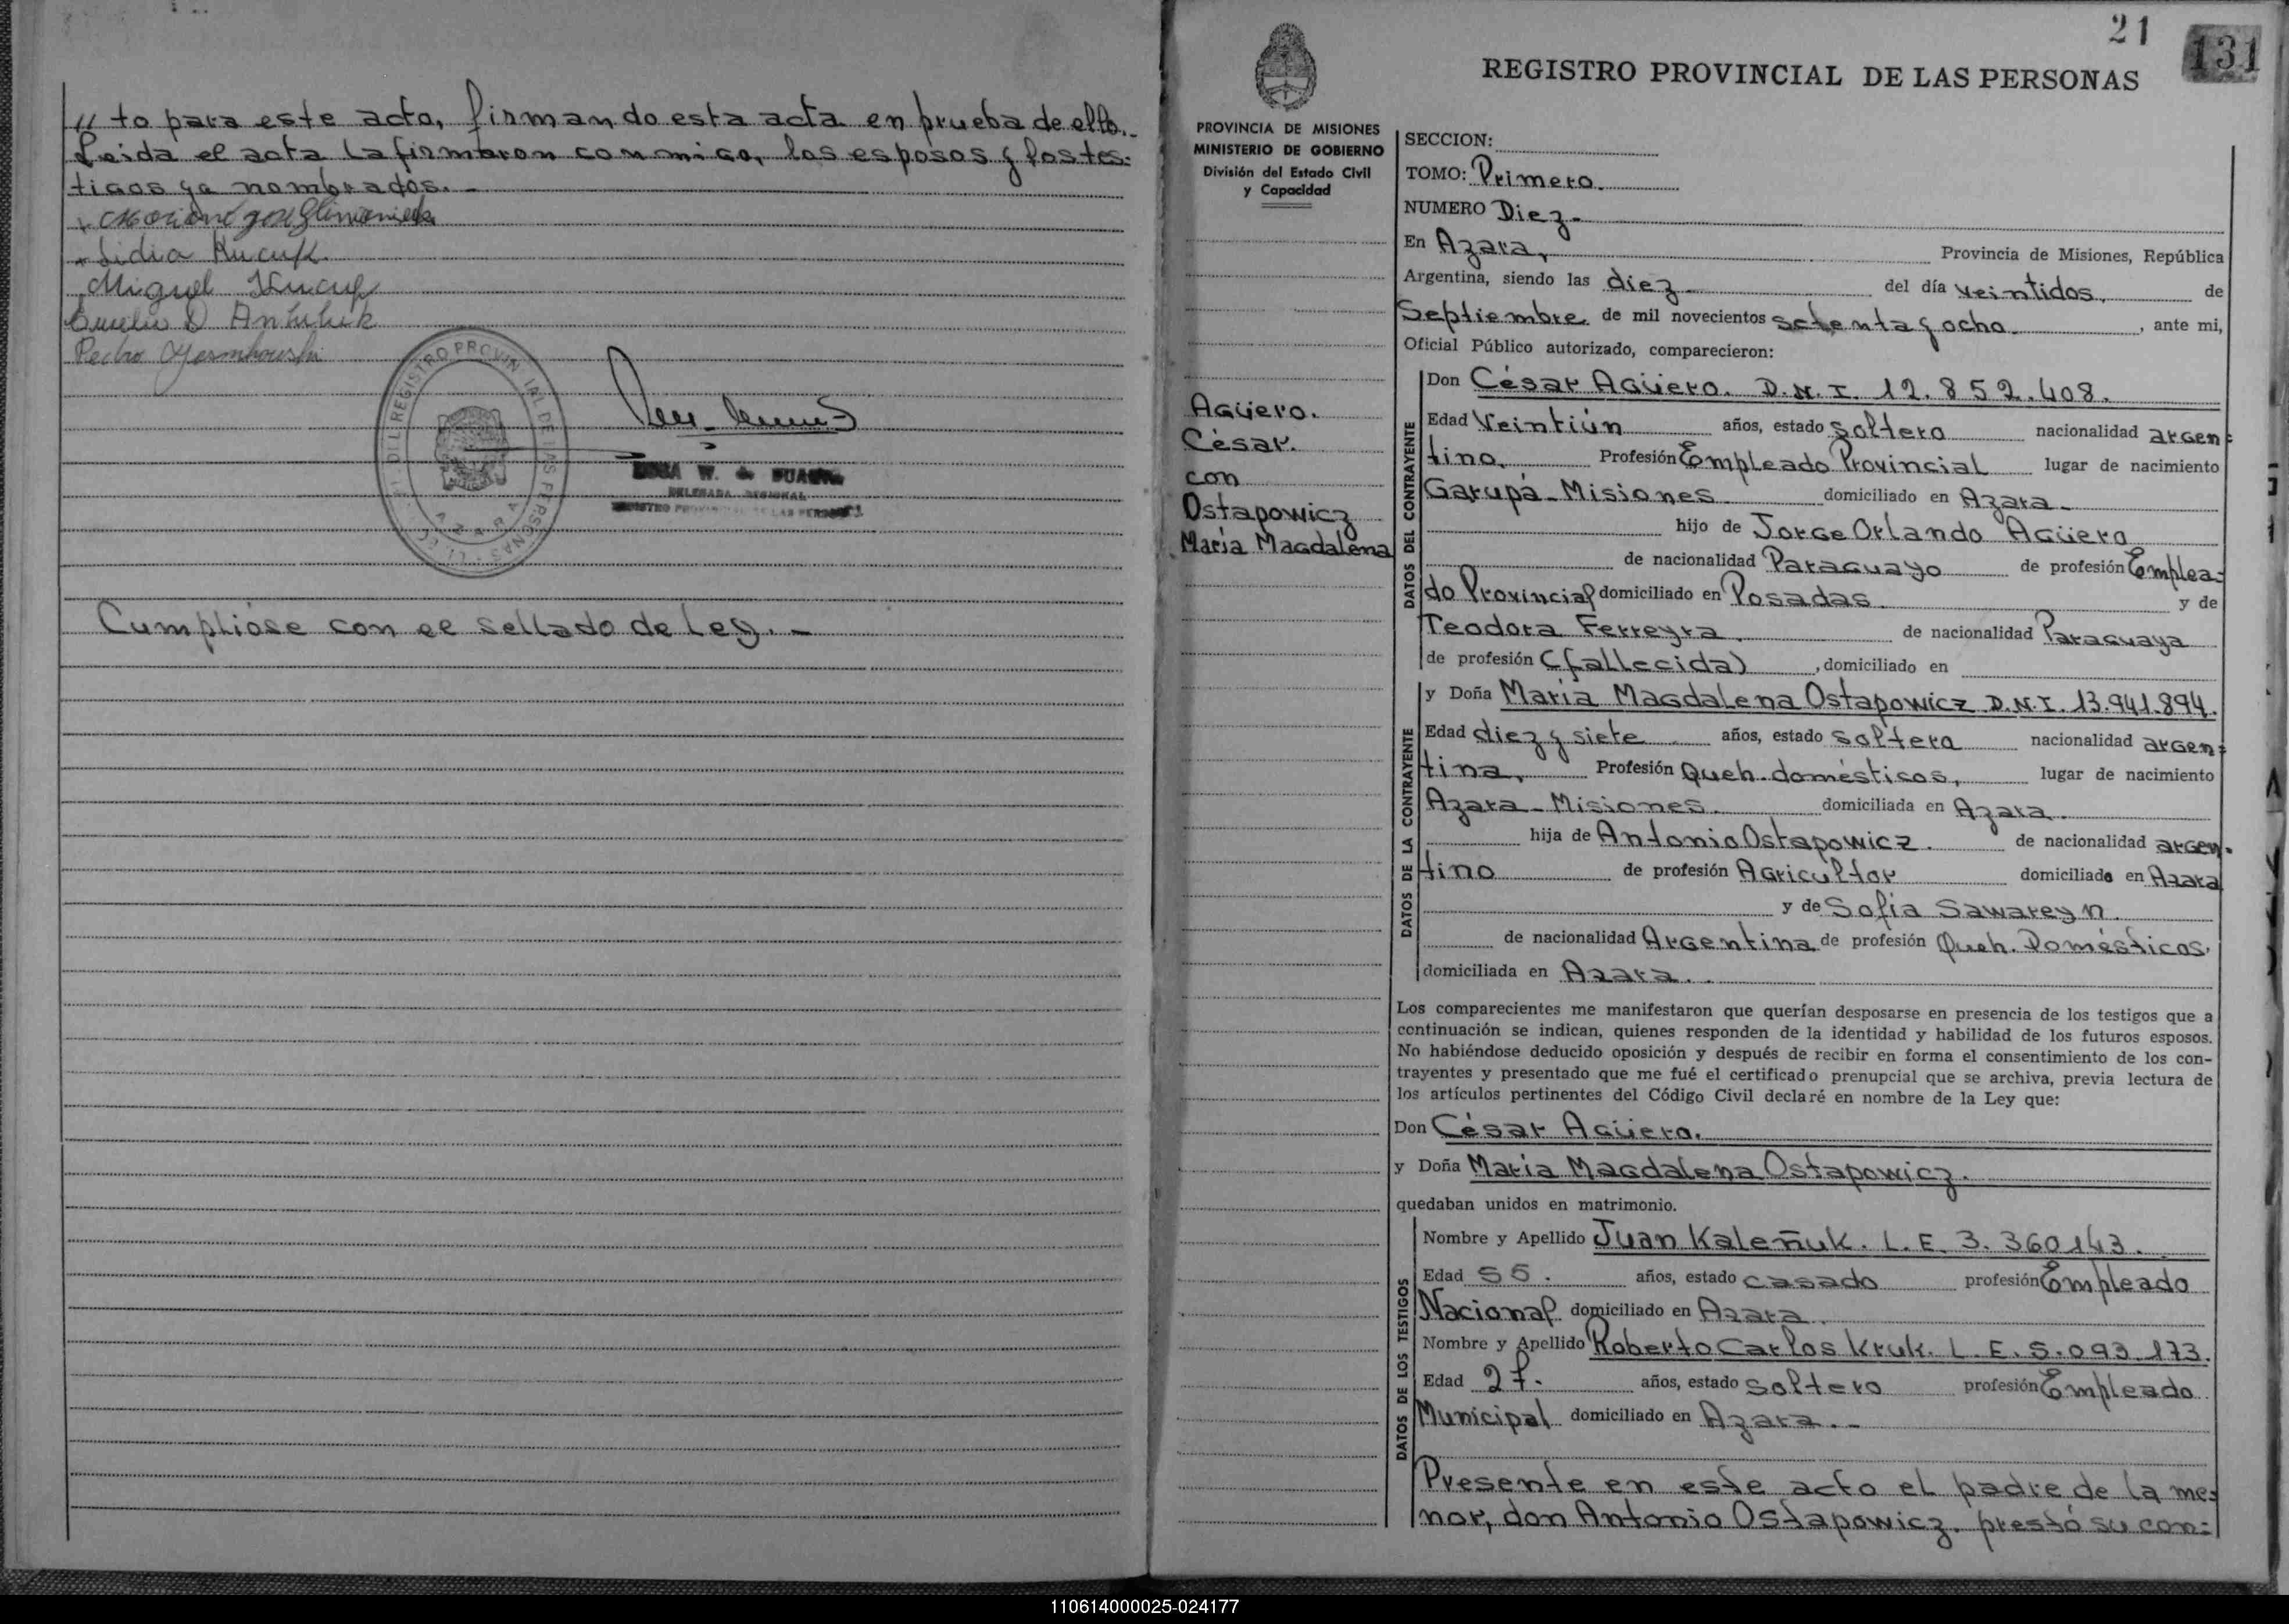 // to para este acto, firmando esta acta en prueba de ello.-
Leida el acta la firmaron conmigo, los esposos y los tes-
tigos ya nombrados.-
Lidia Kucuk
Miguel Kucuk
Pedro
Cumplióse con el sellado de Ley.-
21
131
REGISTRO PROVINCIAL DE LAS PERSONAS
PROVINCIA DE MISIONES
MINISTERIO DE GOBIERNO
División del Estado Civil
y Capacidad
Agüero.
César.
con
Ostapowicz
María Magdalena
SECCION:
TOMO: Primero.
NUMERO Diez.-
En Azara, Provincia de Misiones, República
Argentina, siendo las diez del día veintidos, de
Septiembre de mil novecientos setenta y ocho , ante mi,
Oficial Público autorizado, comparecieron:
DATOS DEL CONTRAYENTE
Don César Agüero. D.N.I. 12.852.408.
Edad Veintiún años, estado soltero nacionalidad argen-
tino, Profesión Empleado Provincial lugar de nacimiento
Garupá-Misiones domiciliado en Azara-
hijo de Jorge Orlando Agüero
de nacionalidad Paraguayo de profesión Emplea-
do Provincial domiciliado en Posadas y de
Teodora Ferreyra, de nacionalidad Paraguaya
de profesión (fallecida) , domiciliado en
DATOS DE LA CONTRAYENTE
y Doña María Magdalena Ostapowicz D.N.I. 13.941.894.
Edad diez y siete años, estado soltera nacionalidad argen-
tina, Profesión Queh. domésticos, lugar de nacimiento
Azara-Misiones. domiciliada en Azara.
hija de Antonio Ostapowicz. de nacionalidad argen-
tino de profesión Agricultor domiciliado en Azara
y de Sofía Sawareyn.
de nacionalidad Argentina de profesión Queh. Domésticos.
domiciliada en Azara..
Los comparecientes me manifestaron que querían desposarse en presencia de los testigos que a
continuación se indican, quienes responden de la identidad y habilidad de los futuros esposos.
No habiéndose deducido oposición y después de recibir en forma el consentimiento de los con-
trayentes y presentado que me fué el certificado prenupcial que se archiva, previa lectura de
los artículos pertinentes del Código Civil declaré en nombre de la Ley que:
Don César Agüero.
y Doña María Magdalena Ostapowicz.
quedaban unidos en matrimonio.
DATOS DE LOS TESTIGOS
Nombre y Apellido Juan Kaleñuk. L.E. 3.360143.
Edad 55. años, estado casado profesión Empleado
Nacional domiciliado en Azara.
Nombre y Apellido Roberto Carlos Kruk. L.E. 5.093.173.
Edad 27. años, estado soltero profesión Empleado
Municipal domiciliado en Azara.-
Presente en este acto el padre de la me-
nor, don Antonio Ostapowicz, prestó su con-
110614000025-024177